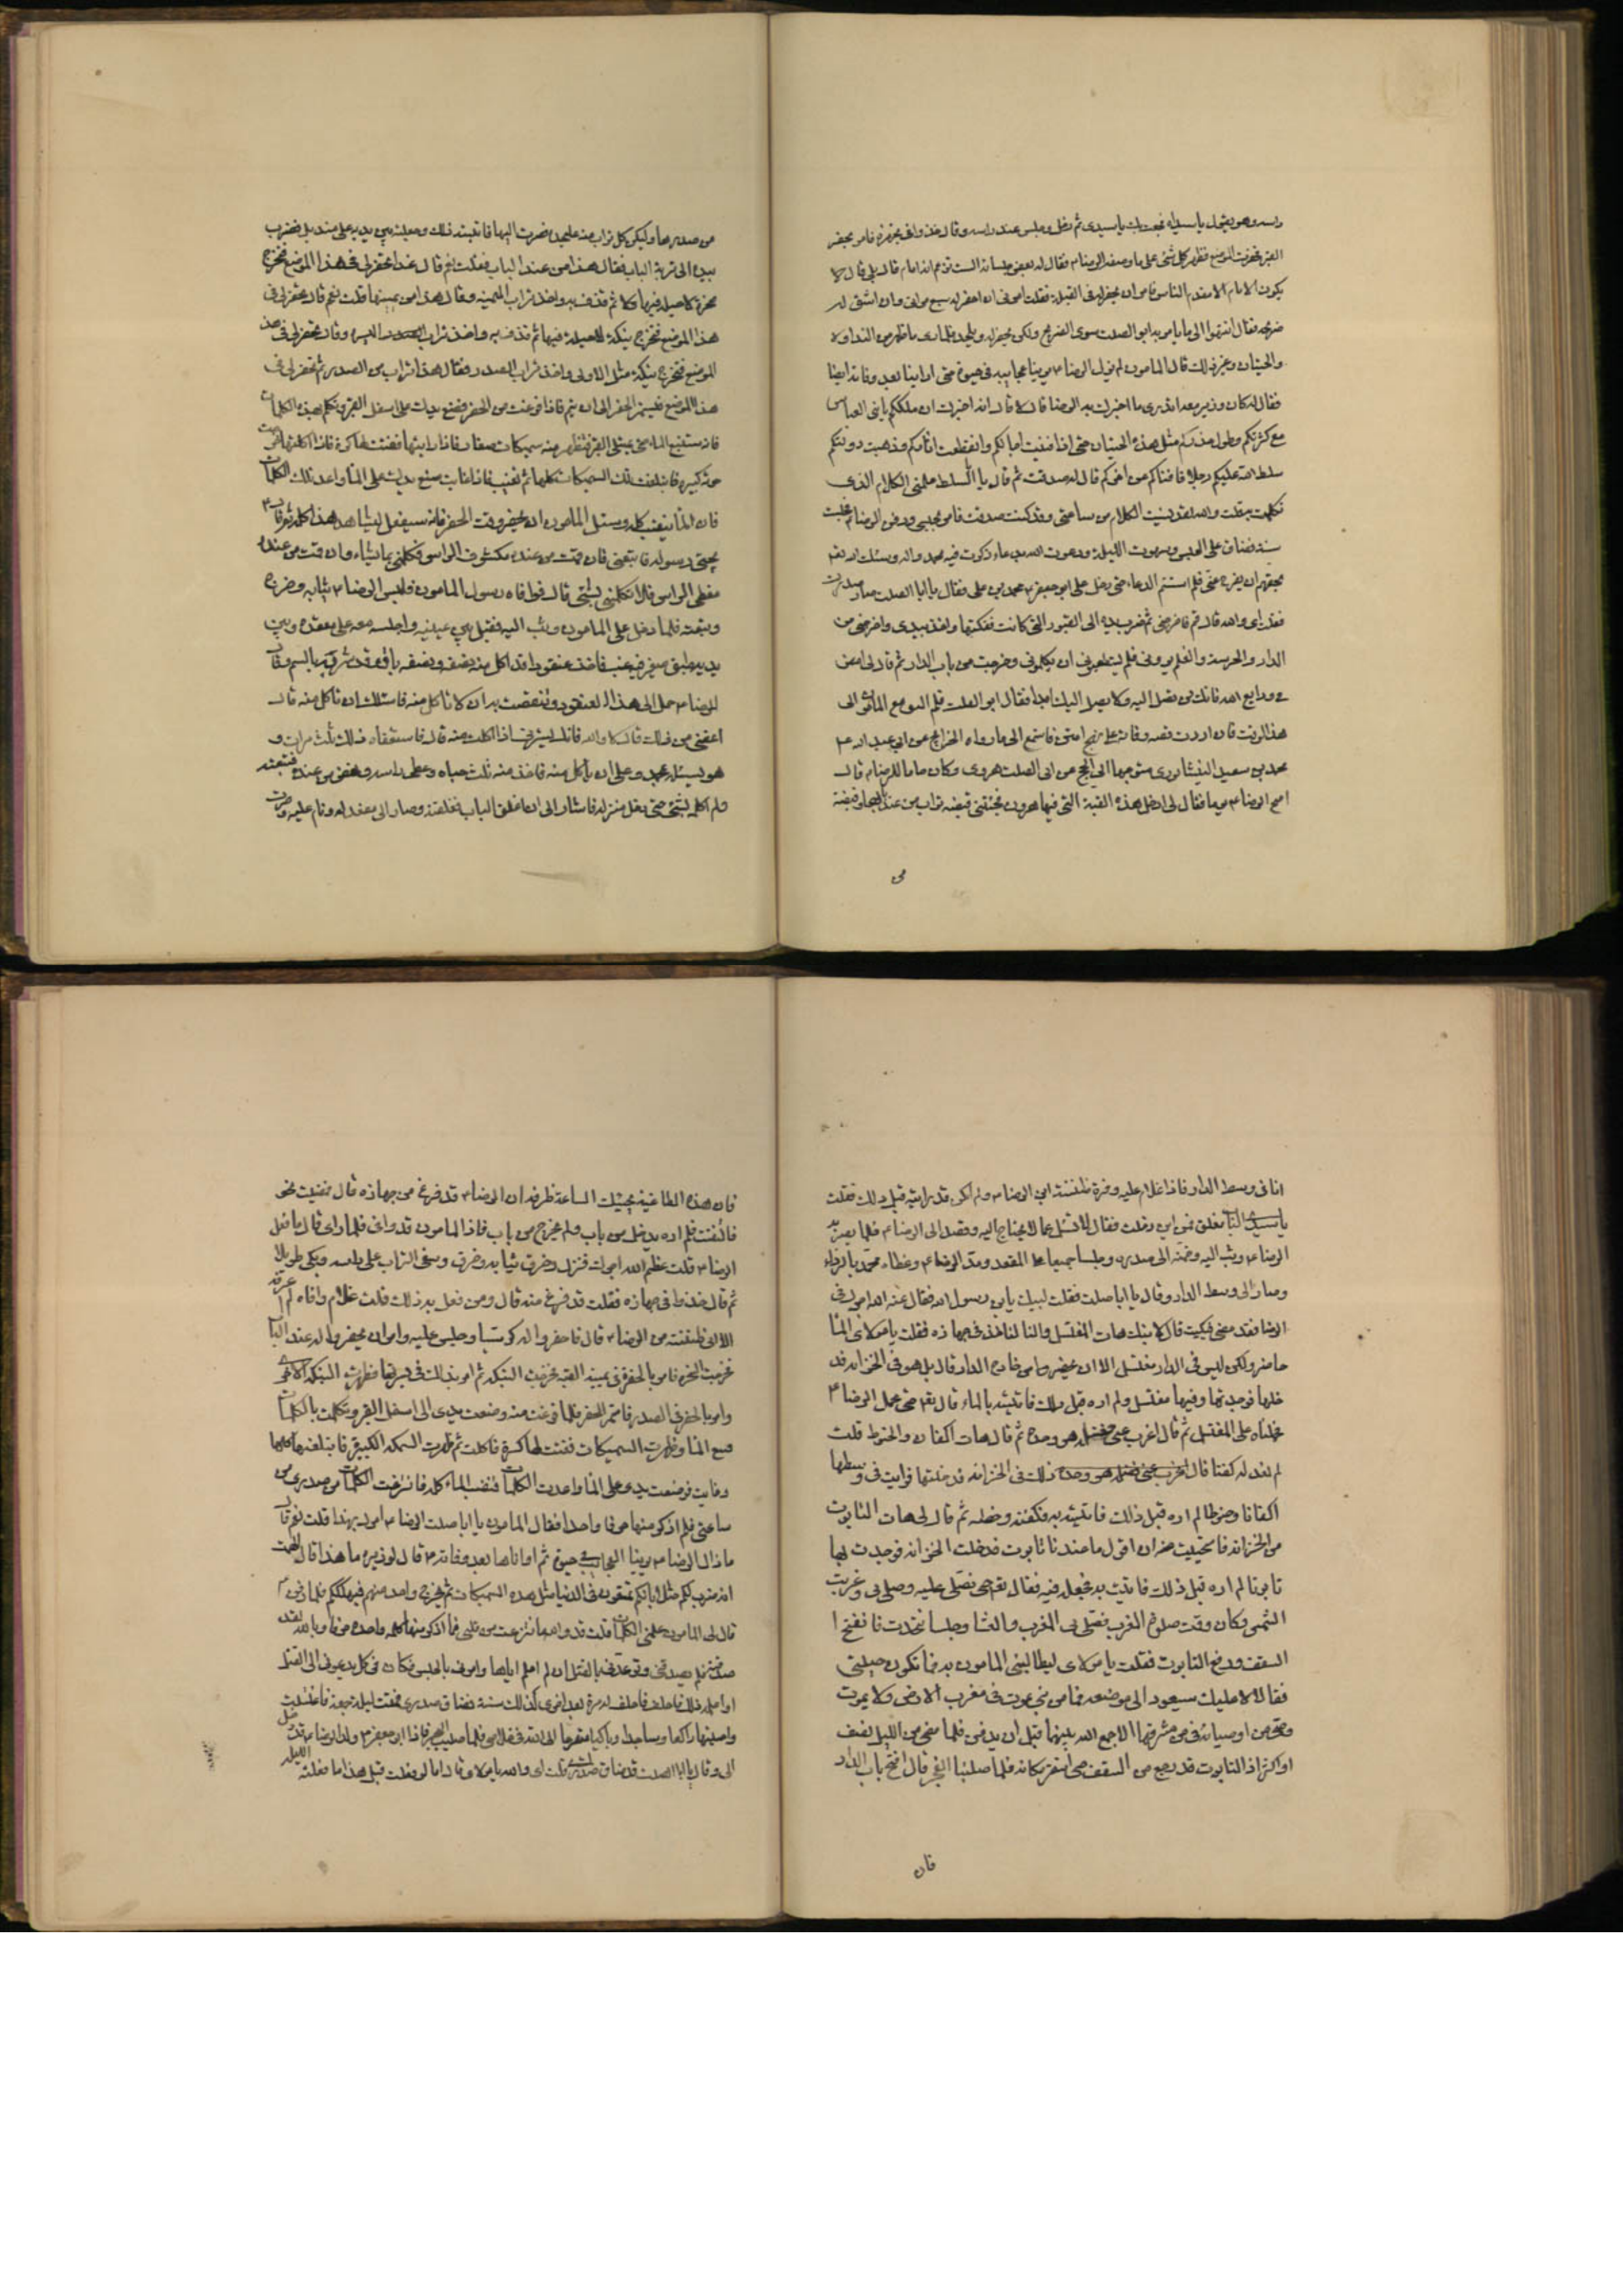 راسه وهو يقول يا سيداه فجعت بك يا سيدى ثم دخل وجلس عند راسه وقال خذوا فى تجهيزه فامر بحفر
القبر فحفرت الموضع فظهر كل شئ على ما وصفه الرضا م فقال له بعض جلسائه الست تزعم انه امام قال بلى قال لا
يكون الامام الا مقدم الناس فامر ان يحفر له فى القبلة فقلت امرنى ان احفر له سبع مراقى وان اشق له
ضريحه فقال انتهوا الى ما يامر به ابو الصلت سوى الضريح ولكن يحفر له ويلحد فلما راى ما ظهر من النداوة
والحيتان وغير ذلك قال المامون لم يزل الرضا م يرينا عجايبه فى حيوته حتى اراناها بعد وفاته ايضا
فقال له كان وزير معه اتدرى ما اخبرك به الرضا قال لا قال انه اخبرك ان ملككم يا بنى العباس
مع كثرتكم وطول مدتكم مثل هذه الحيتان حتى اذا فنيت اجالكم وانقطعت اثاركم وذهبت دولتكم
سلط الله عليكم رجلا فافناكم عن اخركم قال له صدقت ثم قال يا ابا الصلت علمنى الكلام الذى
تكلمت به قلت والله لقد نسيت الكلام من ساعتى وقد كنت صدقت فامر بحبسى ودفن الرضا م فحبست
سنة فضاق على الحبس وسهرت الليلة ودعوت الله بدعاء ذكرت فيه محمد واله وسئلت الله تع
بحقهم ان يفرج عنى فلم استتم الدعاء حتى دخل على ابو جعفر م محمد بن على فقال يا ابا الصلت ضاق صدرك
فقلت اى والله قال قم فاخرجنى ثم ضرب يده الى القيود التى كانت ففكها واخذ بيدى واخرجنى من
الدار والحرسة والغلمة يرونى فلم يستطيعوا ان يكلمونى وخرجت من باب الدار ثم قال لى امض
فى ودايع الله فانك لن تصل اليه ولا يصل اليك ابدا فقال ابو الصلت فلم التق مع المامون الى
هذا الوقت
محمد بن سعيد النيشابورى متوجها الى الحج عن ابى الصلت الهروى وكان خادما للرضا م قال
اصبح الرضا م يوما فقال لى ادخل هذه القبة التى فيها هرون فجئنى بقبضة تراب من عند بابها وقبضة
من
من صدرها وليكن كل تراب منه على حده فصرت اليها فاتيته بذلك وجعلته بين يديه على منديل فضرب
بيده الى تربة الباب فقال هذا من عند الباب فقلت نعم قال غدا تحفر لى فى هذا الموضع فتخرج
صخرة لا حيلة فيها ثم قذف به واخذ تراب اليمنة وقال هذا من يمينها قلت نعم قال تحفر لى فى
هذا الموضع فتخرج نبكة لا حيلة فيها ثم قذف به واخذ تراب اليسره وقال تحفر لى فى هذا
الموضع فتخرج نبكة مثل الاولى واخذ تراب الصدر فقال هذا تراب من الصدر ثم تحفر لى فى
هذا الموضع فيستمر الحفر الى ان يتم فاذا فرغت من الحفر فضع يدك على اسفل القبر وتكلم بهذه الكلمات
فانه سينبع الماء حتى يمتلى القبر فتظهر منه سميكات صغار فاذا رايتها ففتت لها كسرة فاذا اكلتها خرجت
حوتة كبيرة فابتلعت تلك السميكات كلها ثم تغيب فاذا غابت فضع يدك على الماء واعد تلك الكلمات
فان الماء ينضب كله وسئل المامون ان يحضر وقت الحفر فانه سيفعل ليشاهد هذا كله ثم قال م
يجئ رسوله فاتبعنى فان قمت من عنده مكشوف الراس فكلمنى بما تشاء وان قمت من عنده
مغطى الراس فلا تكلمنى بشئ قال فوافاه رسول المامون فلبس الرضا م ثيابه وخرج
وتبعته فلما دخل على المامون وثب اليه فقبل بين عينيه واجلسه معه على مقعده وبين
يديه طبق صغير فيه عنب فاخذ عنقودا قد اكل منه نصفه ونصفه باق وقد شربه بالسم وقال
للرضا م حمل الى هذا العنقود وتنغصت به ان لا تاكل منه فاسئلك ان تاكل منه قال
اعفنى من ذلك قال لا والله فانك تسرنى اذا اكلت منه قال فاستعفاه ذلك ثلث مرات و
هو يسئله بمحمد وعلى ان ياكل منه فاخذ منه ثلث حباه وغطى راسه ونهض من عنده فتبعته
ولم اكلمه بشئ حتى دخل منزله فاشار الى ان اغلق الباب فغلقته وصار الى مقعد له ونام عليه وصرت
انا فى وسط الدار فاذا غلام عليه وفرة ظننته ابن الرضا م ولم اكن قد رايته قبل ذلك فقلت
يا سيدى الباب مغلق فمن اين دخلت فقال لا تسئل عما لا تحتاج اليه وقصد الى الرضا م فلما بصر به
الرضا م وثب اليه وضمه الى صدره وجلسا جميعا على المقعد ومد الرضا م وغطاه محمد بالرداء
وصار الى وسط الدار وقال يا ابا صلت فقلت لبيك يا بن رسول الله فقال عظم الله اجرك فى
الرضا فقد مضى فبكيت قال لا تبك هات المغتسل والماء لناخذ فى جهازه فقلت يا مولاى الماء
حاضر ولكن ليس فى الدار مغتسل الا ان يحضر من خارج الدار قال بل هو فى الخزانه فد
خلها فوجدتها وفيها مغتسل ولم اره قبل ذلك فاتيته بالماء قال تع حتى نحمل الرضا م
فحملناه على المغتسل ثم قال اغرب عنى فغسله هو وحده ثم قال هات اكفان والحنوط قلت
لم نعد له كفنا قال ذلك فى الخزانه فدخلتها فرايت فى وسطها
اكفانا وحنوطا لم اره قبل ذلك فاتيته به فكفنه وحنطه ثم قال لى هات التابوت
من الخزانه فاستحييت منه ان اقول ما عندنا تابوت فدخلت الخزانه فوجدت بها
تابوتا لم اره قبل ذلك فاتيت به فجعله فيه فقال تع حتى نصلى عليه وصلى بى وغربت
الشمس وكان وقت صلوة المغرب فصلى بى المغرب والعشاء وجلسنا نتحدث فانفتح ا
السقف ورفع التابوت فقلت يا مولاى ليطالبنى المامون به فما تكون حيلتى
فقال لا عليك سيعود الى موضعه فما من نبى يموت فى مغرب الارض ولا يموت
وصى من اوصيائه فى مشرقها الا جمع الله بينهما قبل ان يدفن فلما مضى من الليل نصف
او اكثر اذا التابوت قد رجع من السقف حتى استقر مكانه فلما صلينا الفجر قال افتح باب الدار
فان
فان هذه الطاغية يجيئك الساعة فعرفه ان الرضا م قد فرغ من جهازه قال فمضيت نحو
فالتفت فلم اره يدخل من باب ولم يخرج من باب فاذا المامون قد وافى فلما رانى قال ما فعل
الرضا م قلت عظم الله اجرك فنزل وخرق ثيابه وسفى التراب على راسه وبكى طويلا
ثم قال خذوا فى جهازه فقلت قد فرغ منه قال ومن فعل به ذلك قلت غلام وافاه لم اعرفه
الا انى ظننته من الرضا م قال فاحفروا له كرسيا وجلس عليه وامر ان يحفروا له عند الباب
فخرجت الصخرة فامر بالحفرة فى يمينة القبة فخرجت النبكه ثم امر بذلك فى يسرتها فظهرت النبكة الاخرى
وامر بالحفر فى الصدر فاستمر الحفر فلما فرغت منه وضعت يدى الى اسفل القبر وتكلمت بالكلمات
فنبع الماء وظهرت السميكات ففتت لها كسرة فاكلت ثم ظهرت السمكه الكبيرة فابتلعتها كلها
وغابت فوضعت يدى على الماء واعدت الكلمات فنضب الماء كله فانتزعت الكلمات من صدرى من
ساعتى فلم اذكر منها حرفا واحدا فقال المامون يا ابا صلت الرضا م امرك بهذا قلت نعم قال
ما زال الرضا م يرينا العجايب فى حيوته ثم اراناها بعد وفاته م قال لوزيره ما هذا قال الهمت
انه ضرب لكم مثلا بانكم تتمتعون فى الدنيا مثل هذه السميكات ثم يخرج واحد منهم فيهلككم فلما دفن م
قال لى المامون علمنى الكلمات قلت قد والله انتزعت من قلبى فما اذكر منها كلمة واحده حرفا وبالله لقد
صدقته فلم يصدقنى وتوعدنى بالقتل ان لم اعلمه اياها وامر بى بالحبس فكان فى كل يدعونى الى القتل
او اعلمه ذلك فاحلف له مرة بعد اخرى كذلك سنة فضاق صدرى فقمت ليلة جمعة فاغتسلت
واحييتها راكعا وساجدا وباكيا متضرعا الى الله فى خلاصى فلما صليت الفجر فاذا ابو جعفر م ولد الرضا م قد دخل
الى وقال يا ابا الصلت قد ضاق صدرك قلت اى والله يا مولاى قال اما لو فعلت قبل هذا ما فعلته الليله